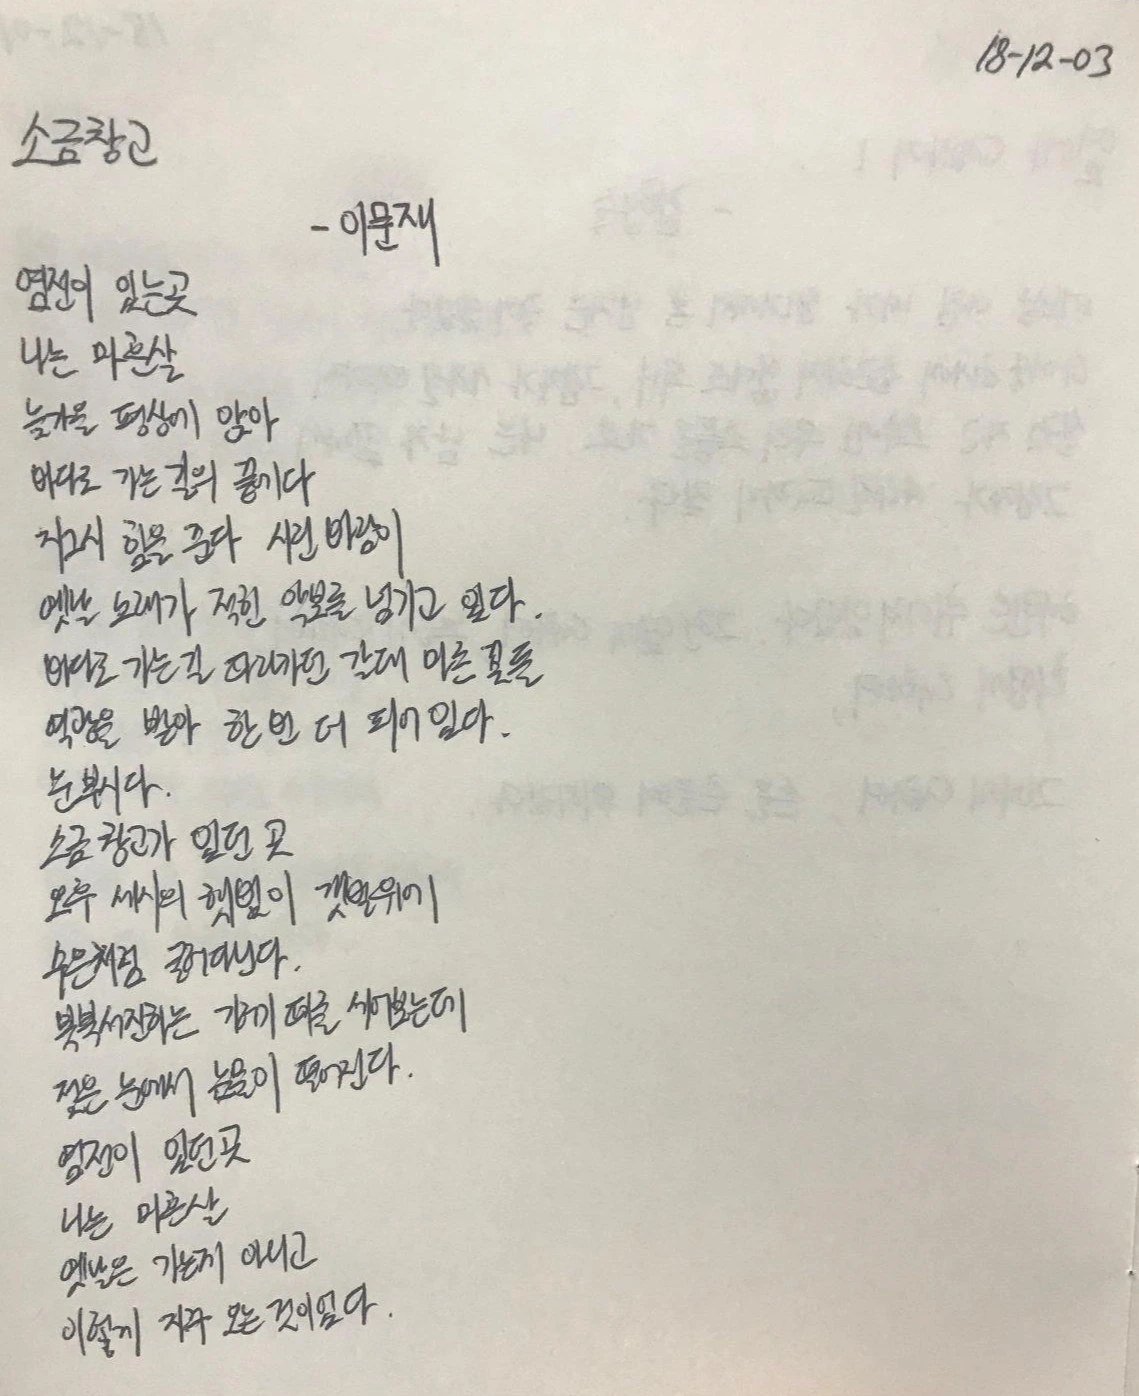 18-12-03
소금창고
- 이문재
염전이 있는곳
나는 마흔살
늦가을 평상에 앉아
바다로 가는 길의 끝에다
지그시 힘을 준다 시린 바람이
옛날 노래가 적힌 악보를 넘기고 있다.
바다로 가는길 따라가던 갈대 마른 꽃들
역광을 받아 한 번 더 피어 있다.
눈부시다.
소금 창고가 있던 곳
오후 세시의 햇빛이 갯벌위에
수은처럼 굴러다닌다.
북북서진하는 기러기 떼를 세어보는데
젖은 눈에서 눈물이 떨어진다.
염전이 있던곳
나는 마흔살
옛날은 가는게 아니고
이렇게 자꾸 오는 것이었다.